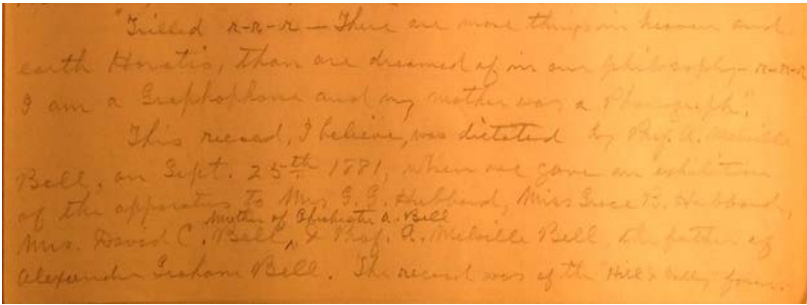 "Trilled r-r-r — There are more things in heaven and
earth Horatio, than are dreamed of in our philosophy - r-r-r
I am a Graphophone and my mother was a Phonograph".
This record, I believe, was dictated by Prof. A. Melville
Bell, on Sept. 25th 1881, when we gave an exhibition
of the apparatus to Mrs G. G. Hubbard, Miss Grace B. Hubbard,
mother of Chichester A. Bell
Mrs. David C. Bell, & Prof. A. Melville Bell the father of
Alexander Graham Bell. The record was of the "Hill & Valley" form.